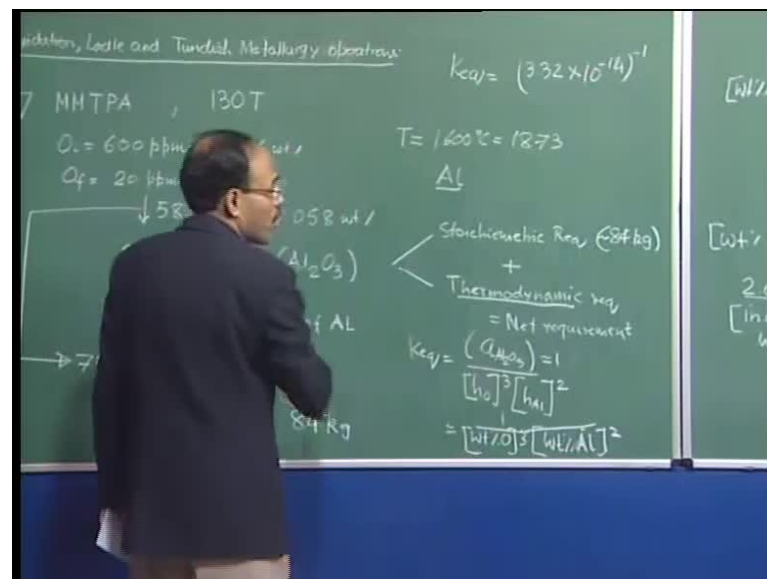 Ladle and Tundish Metallurgy operations
7 MMTPA , 130T
O. = 600 ppm wt/
Of = 20 ppm
↓ 58 058 wt/
(Al2O3)
of AL
→ 7
84 kg
Keq = (3.32×10^-14)^-1
T = 1600°C = 1873
AL
Stoichiometric Req (~84 kg)
+
Thermodynamic req
= Net requirement
Keq = (aAl2O3) = 1
[hO]^3 [hAl]^2
= 1
[wt/.O]^3 [wt/.Al]^2
[wt/
[wt/.
2.
[in